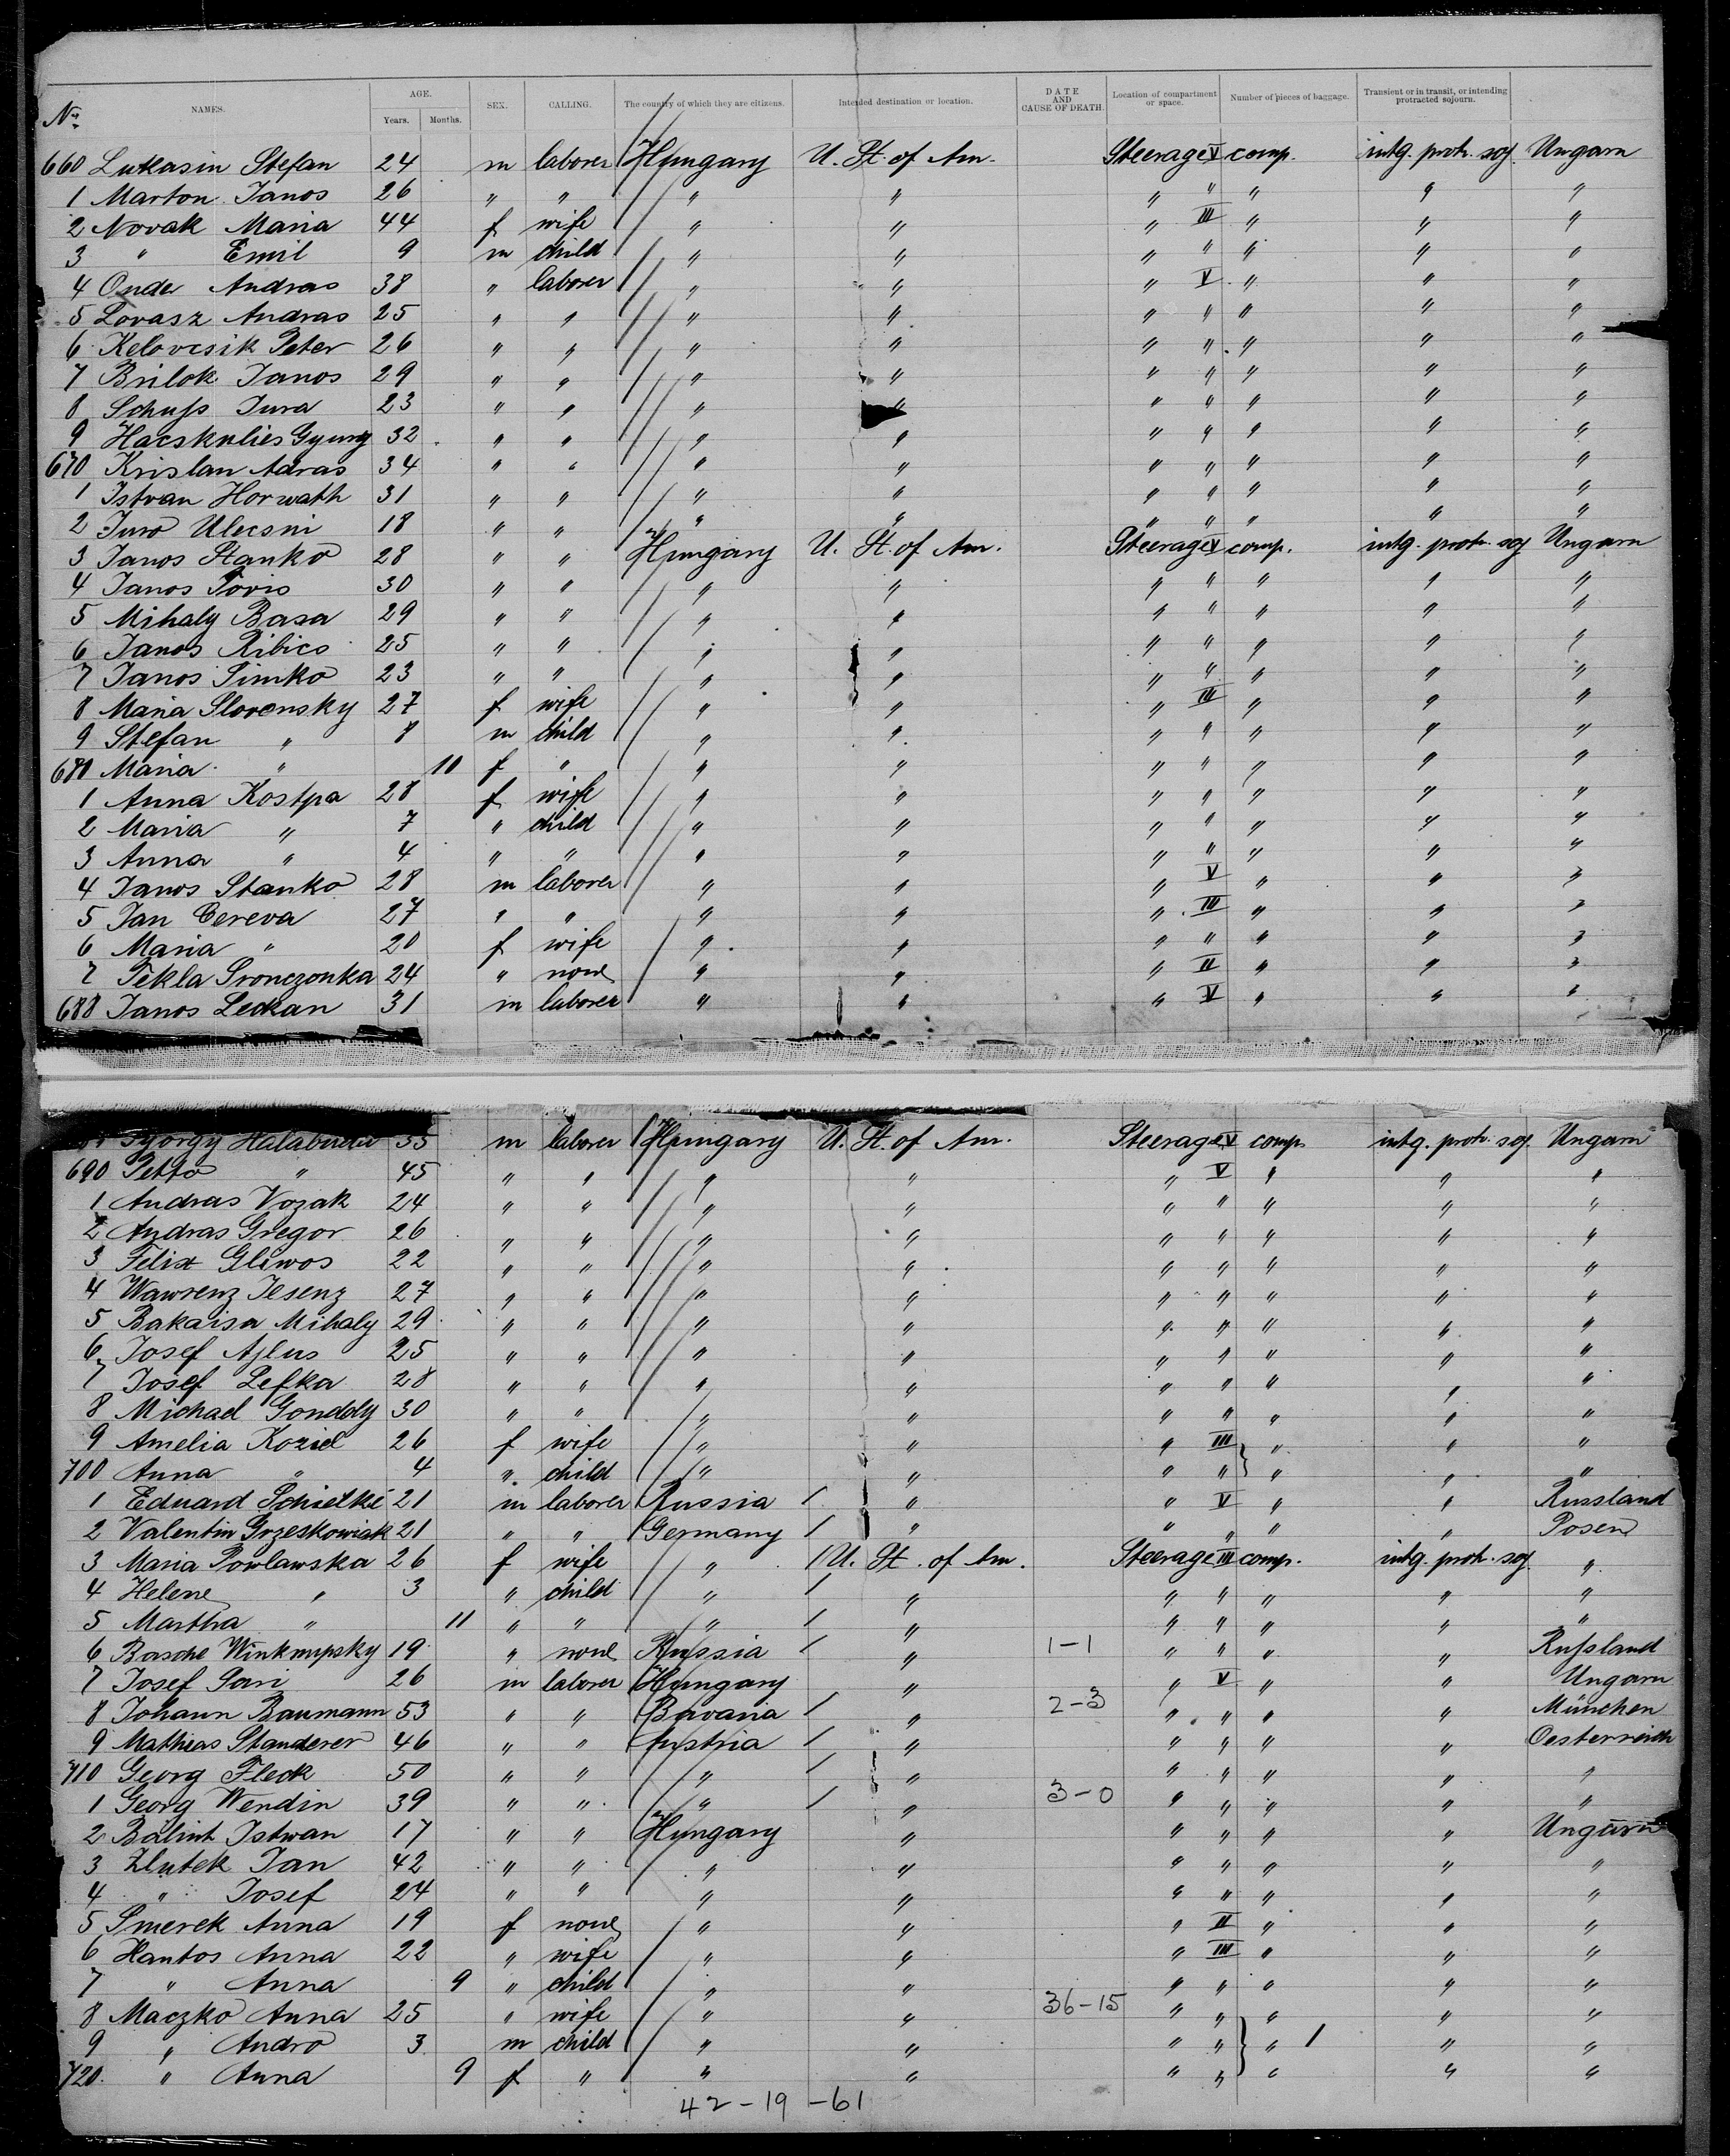 No. NAMES. AGE. Years. Months. SEX. CALLING. The country of which they are citizens. Intended destination or location. DATE AND CAUSE OF DEATH. Location of compartment or space. Number of pieces of baggage. Transient or in transit, or intending protracted sojourn.
660 Lukasin Stefan 24 m laborer Hungary U. St. of Am. Steerage V comp. intg. protr. soj. Ungarn
1 Marton Janos 26 " " " " " " " " "
2 Novak Maria 44 f wife " " " III " " "
3 " Emil 9 m child " " " " " " "
4 Onder Andras 38 " laborer " " " V " " "
5 Lovasz Andras 25 " " " " " " " " "
6 Kelovcsik Peter 26 " " " " " " " " "
7 Brilok Janos 29 " " " " " " " " "
8 Schuss Jura 23 " " " " " " " " "
9 Hacskulies Gyurg 32 " " " " " " " " "
670 Krislan Adras 34 " " " " " " " " "
1 Istvan Horwath 31 " " " " " " " " "
2 Juro Ulecsni 18 " " " " " " " " "
3 Janos Stanko 28 " " Hungary U. St. of Am. Steerage V comp. intg. protr. soj Ungarn
4 Janos Tovis 30 " " " " " " " " "
5 Mihaly Basa 29 " " " " " " " " "
6 Janos Ribics 25 " " " " " " " " "
7 Janos Simko 23 " " " " " " " " "
8 Maria Slovensky 27 f wife " " " III " " "
9 Stefan " 8 m child " " " " " " "
680 Maria " 10 f " " " " " " " "
1 Anna Kostpa 28 f wife " " " " " " "
2 Maria " 7 " child " " " " " " "
3 Anna " 4 " " " " " " " " "
4 Janos Stanko 28 m laborer " " " V " " "
5 Jan Cereva 27 " " " " " III " " "
6 Maria " 20 f wife " " " " " " "
7 Tekla Sronczonka 24 " none " " " II " " "
688 Janos Leckan 31 m laborer " " " V " " "
György Halabuda 35 m laborer Hungary U. St. of Am. Steerage V comp intg. protr. soj. Ungarn
690 Petto " 45 " " " " " V " " "
1 Andras Vozak 24 " " " " " " " " "
2 Andras Gregor 26 " " " " " " " " "
3 Felix Gliwos 22 " " " " " " " " "
4 Wawrenz Jesenz 27 " " " " " " " " "
5 Bakaisa Mihaly 29 " " " " " " " " "
6 Josef Ajlus 25 " " " " " " " " "
7 Josef Lefka 28 " " " " " " " " "
8 Michael Gonddy 30 " " " " " " " " "
9 Amelia Koziel 26 f wife " " " III " " "
700 Anna " 4 " child " " " " " " "
1 Eduard Schielke 21 m laborer Russia " " V " " Russland
2 Valentin Grzeskowiak 21 " " Germany " " " " " Posen
3 Maria Powlawska 26 f wife " U. St. of Am. Steerage III comp. intg. protr. soj. "
4 Helene " 3 " child " " " " " " "
5 Martha " 11 " " " " " " " " "
6 Basche Winknupsky 19 " none Russia " 1-1 " " " " Russland
7 Josef Sari 26 m laborer Hungary " " V " " Ungarn
8 Johann Baumann 53 " " Bavaria " 2-3 " " " " München
9 Mathias Standerer 46 " " Austria " " " " " Oesterreich
710 Georg Fleck 50 " " " " " " " " "
1 Georg Wendin 39 " " " " 3-0 " " " " "
2 Bálint Istwan 17 " " Hungary " " " " " Ungarn
3 Zlutek Jan 42 " " " " " " " " "
4 " Josef 24 " " " " " " " " "
5 Smerek Anna 19 f none " " " II " " "
6 Hantos Anna 22 " wife " " " III " " "
7 " Anna 9 " child " " " " " " "
8 Maczko Anna 25 " wife " " 36-15 " " " " "
9 " Andro 3 m child " " " " " 1 " "
720. " Anna 9 f " " " " " " " "
42-19-61